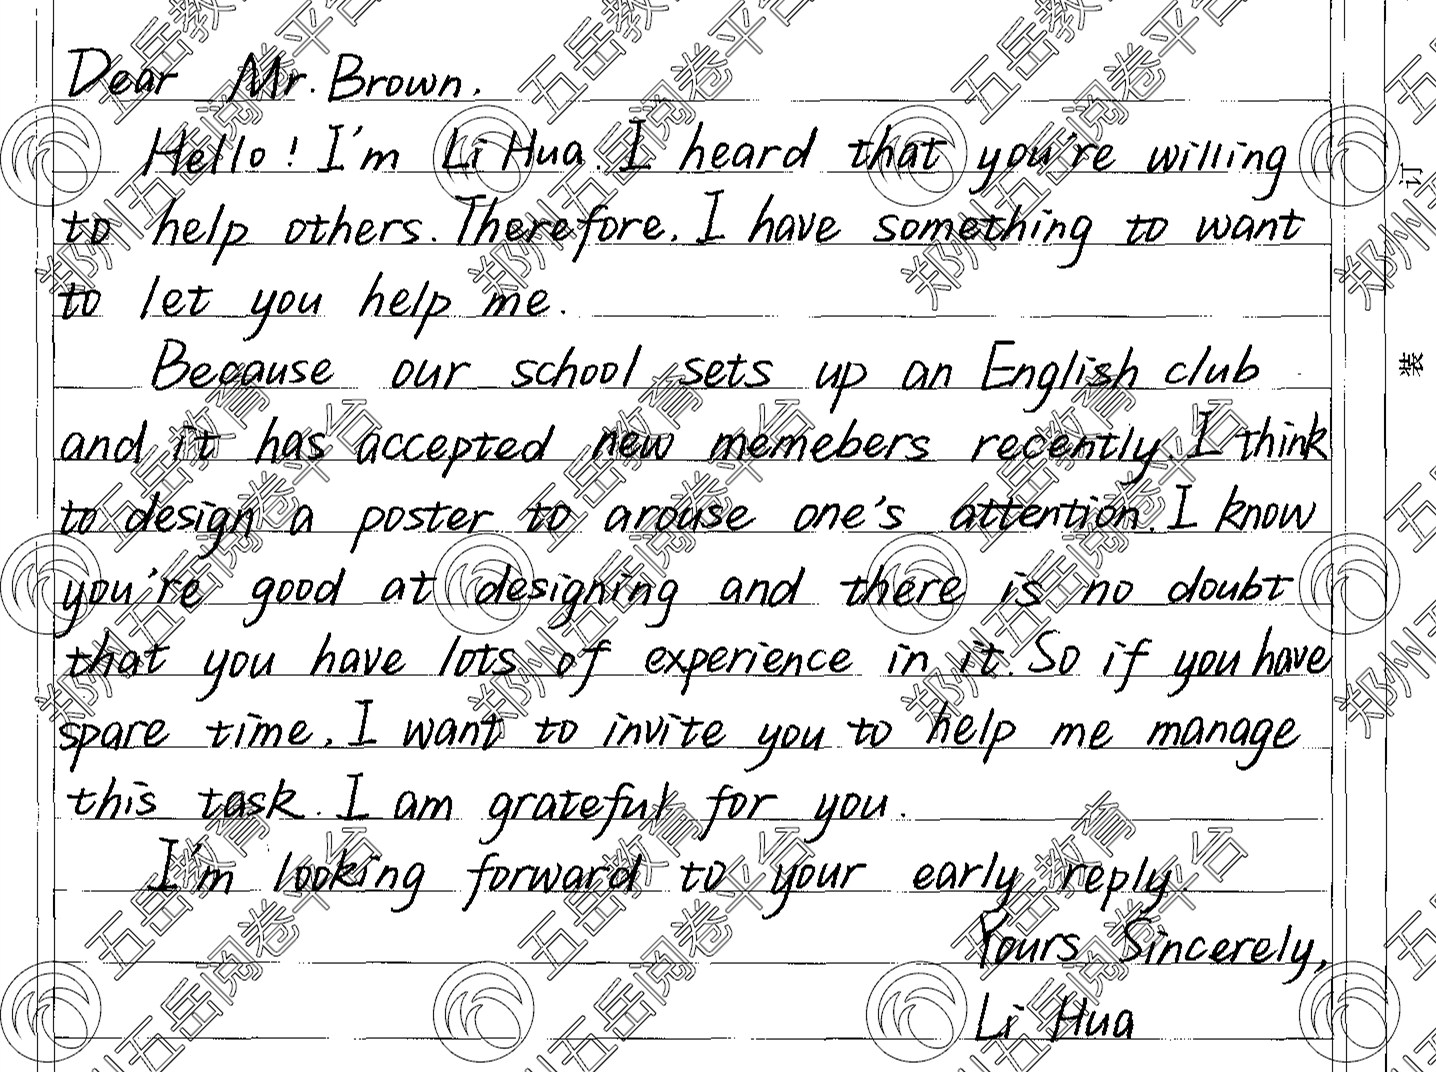 Dear Mr. Brown,
Hello! I'm Li Hua. I heard that you're willing
to help others. Therefore, I have something to want
to let you help me.
Because our school sets up an English club
and it has accepted new memebers recently. I think
to design a poster to arouse one's attention. I know
you're good at designing and there is no doubt
that you have lots of experience in it. So if you have
spare time, I want to invite you to help me manage
this task. I am grateful for you.
I'm looking forward to your early reply.
Yours Sincerely,
Li Hua
订
装
郑州五岳教育
五岳阅卷平台